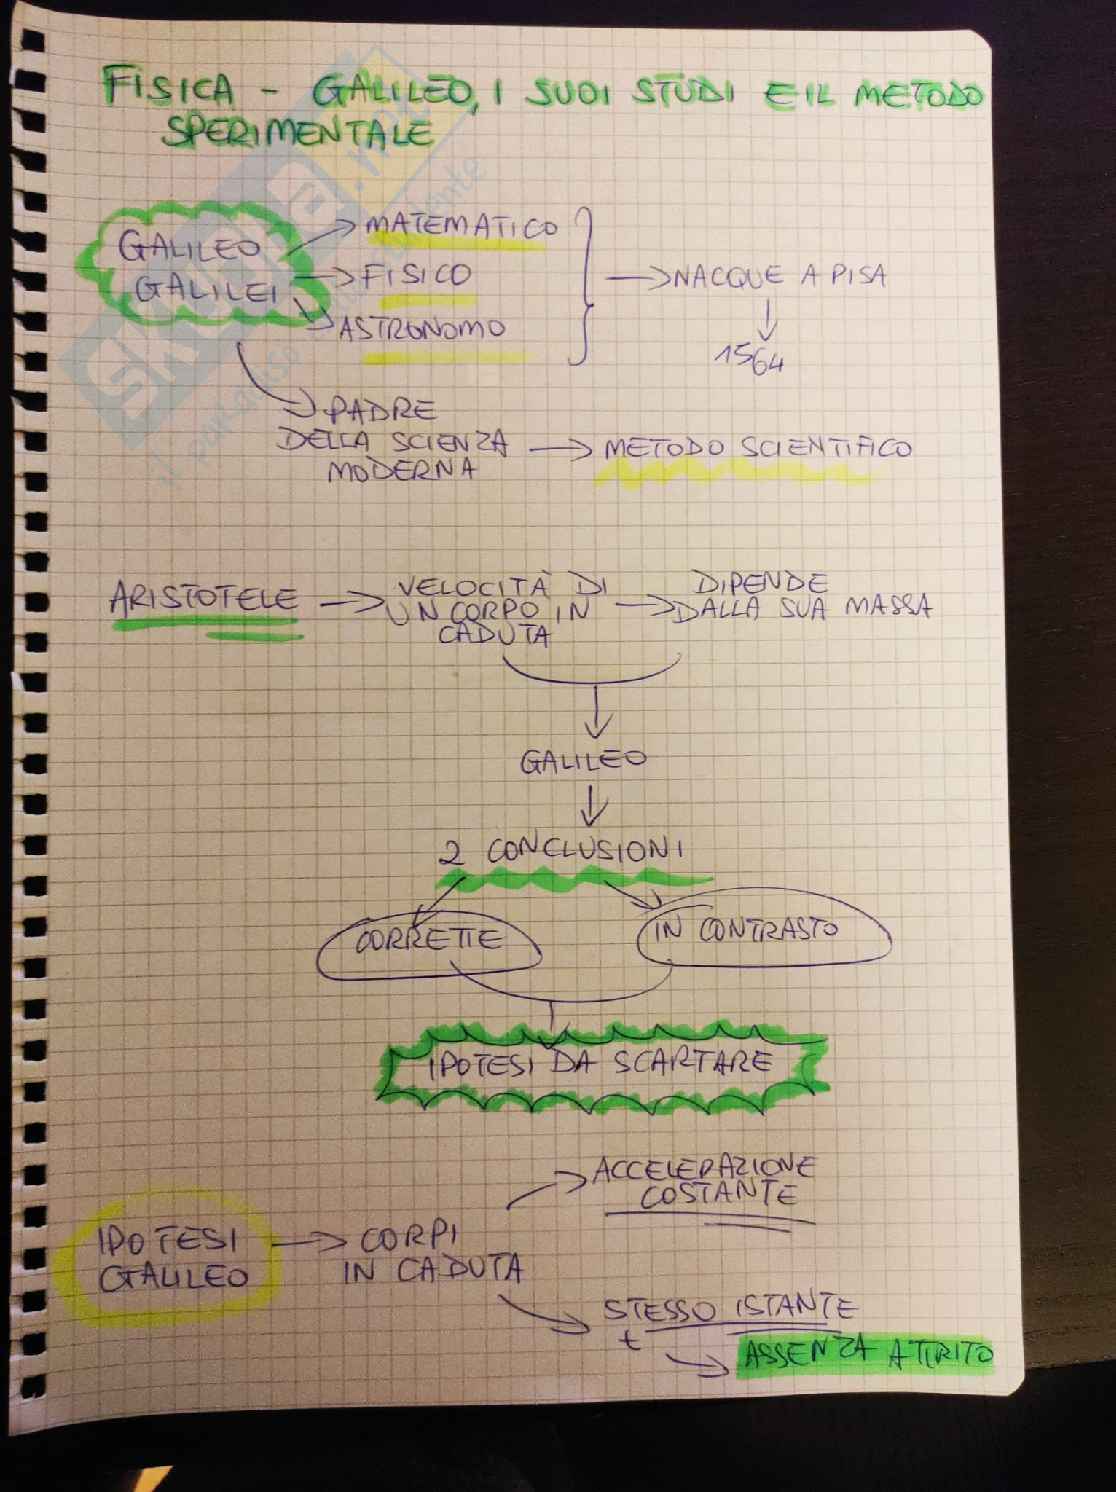 FISICA - GALILEO, I SUOI STUDI E IL METODO
SPERIMENTALE
GALILEO
GALILEI
MATEMATICO
FISICO
ASTRONOMO
NACQUE A PISA
1564
PADRE
DELLA SCIENZA
MODERNA
METODO SCIENTIFICO
ARISTOTELE
VELOCITÀ DI
UN CORPO IN
CADUTA
DIPENDE
DALLA SUA MASSA
GALILEO
2 CONCLUSIONI
CORRETTE
IN CONTRASTO
IPOTESI DA SCARTARE
IPOTESI
GALILEO
CORPI
IN CADUTA
ACCELERAZIONE
COSTANTE
STESSO ISTANTE
t
ASSENZA ATTRITO